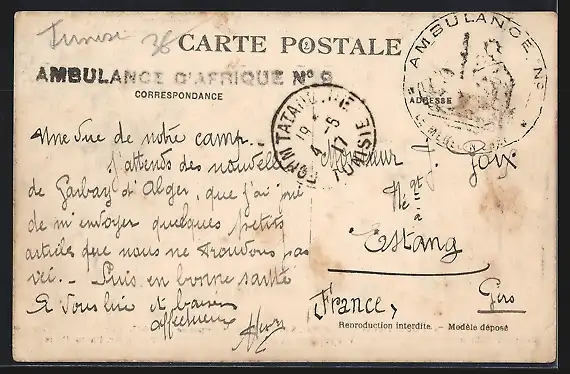 Tunisie 36
CARTE POSTALE
AMBULANCE D'AFRIQUE Nº 9
CORRESPONDANCE
ADRESSE
AMBULANCE Nº
FOUM TATAHOUINE
19 4 -5 17
TUNISIE
Une vue de notre camp..
J'attends des nouvelles
de Garbay d'Alger, que j'ai prié
de m'envoyer quelques petits
articles que nous ne trouvons pas
ici. - Suis en bonne santé
A vous lire et baisers
affectueux
Monsieur J. Goix
Nég^t
à
Estang
France, Gers
Reproduction interdite. - Modèle déposé